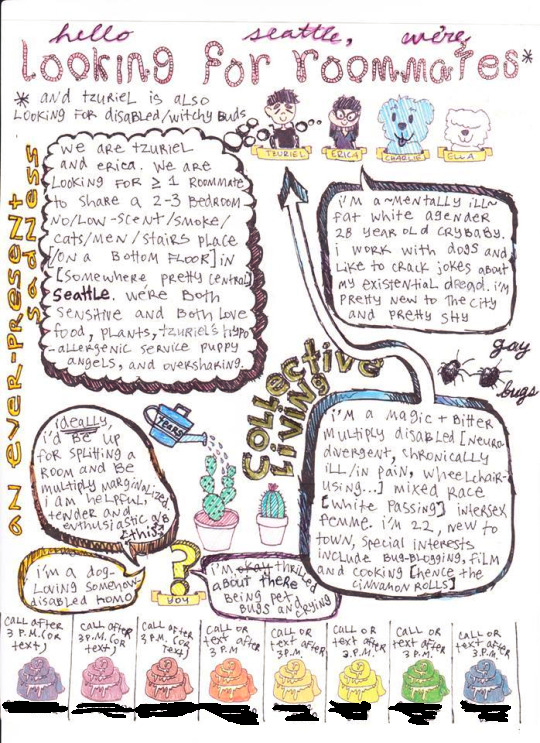 hello seattle, we're
Looking for roommates*
* and tzuriel is also
Looking for disabled/witchy buds
TZURIEL
ERICA
CHARLIE
ELLA
AN EVER-PRESENT
SADNESS
we are tzuriel
and erica. we are
looking for ≥ 1 roommate
to share a 2-3 bedroom
no/low-scent/smoke/
cats/men/stairs place
[on a bottom floor] in
[somewhere pretty central]
Seattle. we're both
sensitive and both love
food, plants, tzuriel's hypo
-allergenic service puppy
angels, and oversharing.
i'm a ~mentally ill~
fat white agender
28 year old crybaby.
i work with dogs and
like to crack jokes about
my existential dread. i'm
pretty new to the city
and pretty shy
gay
bugs
Collective
Living
i'm a magic + bitter
multiply disabled [neuro-
divergent, chronically
ill/in pain, wheelchair-
using...] mixed race
[white passing] intersex
femme. i'm 22, new to
town, special interests
include bug-blogging, film
and cooking [hence the
cinnamon rolls]
tears
ideally,
i'd be up
for splitting a
room and be
multiply marginalized.
i am helpful,
tender and
enthusiastic a/b
[this]
i'm a dog-
loving somehow
disabled homo
?
YOU
i'm okay thrilled
about there
being pet,
bugs an crying
CALL AFTER
3 P.M. (OR
TEXT)
CALL AFTER
3P.M. (OR
TEXT)
CALL AFTER
3 P.M. (OR
TEXT)
CALL OR
text after
3 P.M
CALL OR
text after
3P.M.
CALL OR
text after
3.P.M.
CALL OR
text after
3 P.M.
CALL OR
text after
3.P.M.